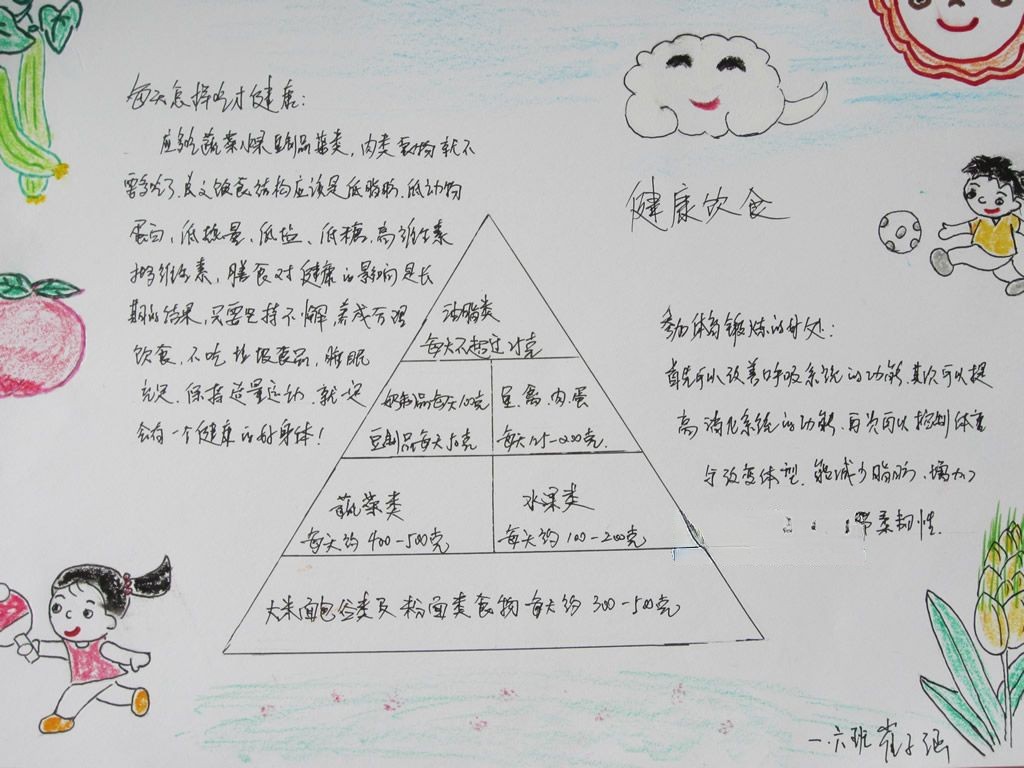 每天怎样吃才健康：
应多吃蔬菜水果豆制品菌类，肉类食物就不
要多吃了，其次饮食结构应该是低脂肪、低动物
蛋白、低热量、低盐、低糖、高维生素
，膳食对健康的影响是长
期的结果，只要坚持不懈，养成合理
饮食，不吃垃圾食品，睡眠
充足，保持适量运动，就一定
会有一个健康的好身体！
健康饮食
油脂类
每天不超过25克
奶制品每天100克
豆制品每天50克
鱼、禽、肉、蛋
每天125-200克
蔬菜类
每天约400-500克
水果类
每天约100-200克
大米面包谷类及粉面类食物每天约300-500克
参加体育锻炼的好处：
首先可以改善呼吸系统的功能，其次可以提
高消化系统的功能，再次可以控制体重
与改变体型，能减少脂肪、增加
柔韧性.
一.六班 崔子涵